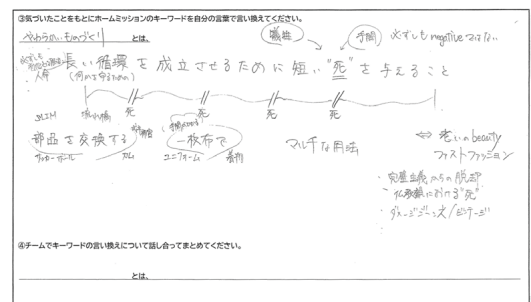 ③気づいたことをもとにホームミッションのキーワードを自分の言葉で言い換えてください。
やわらかいものづくり とは、
犠牲 手間 必ずしも negative ではない
長い循環を成立させるために短い"死"を与えること
人命
死 死 死 死
部品を交換する 一枚布で マルチな用法
ユニフォーム 着物
⇔ 老いの beauty
ファストファッション
・完璧主義からの脱却
・仏教観における"死"
・ダメージジーンズ/ビンテージ
④チームでキーワードの言い換えについて話し合ってまとめてください。
とは、